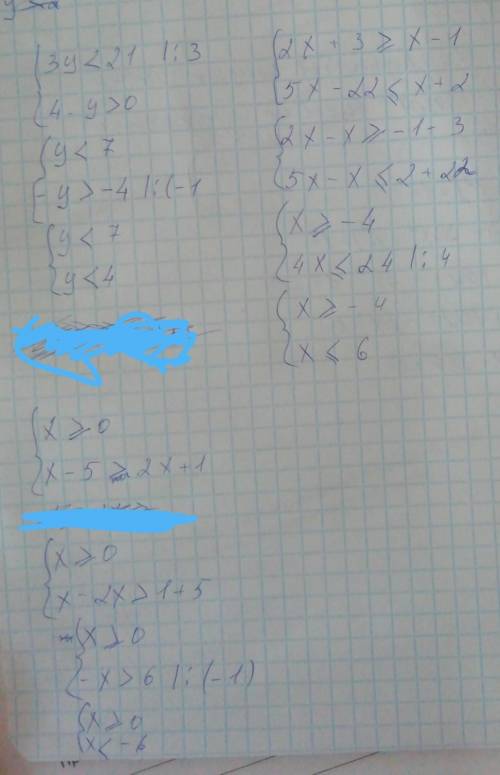 3y < 21 |:3
4 - y > 0
y < 7
- y > -4 |:(-1
y < 7
y < 4
x ⩾ 0
x - 5 ⩾ 2x + 1
x ⩾ 0
x - 2x > 1 + 5
x ⩾ 0
- x > 6 |:(-1)
x ⩾ 0
x < -6
2x + 3 ⩾ x - 1
5x - 22 ⩽ x + 2
2x - x ⩾ -1 - 3
5x - x ⩽ 2 + 22
x ⩾ -4
4x ⩽ 24 |:4
x ⩾ -4
x ⩽ 6